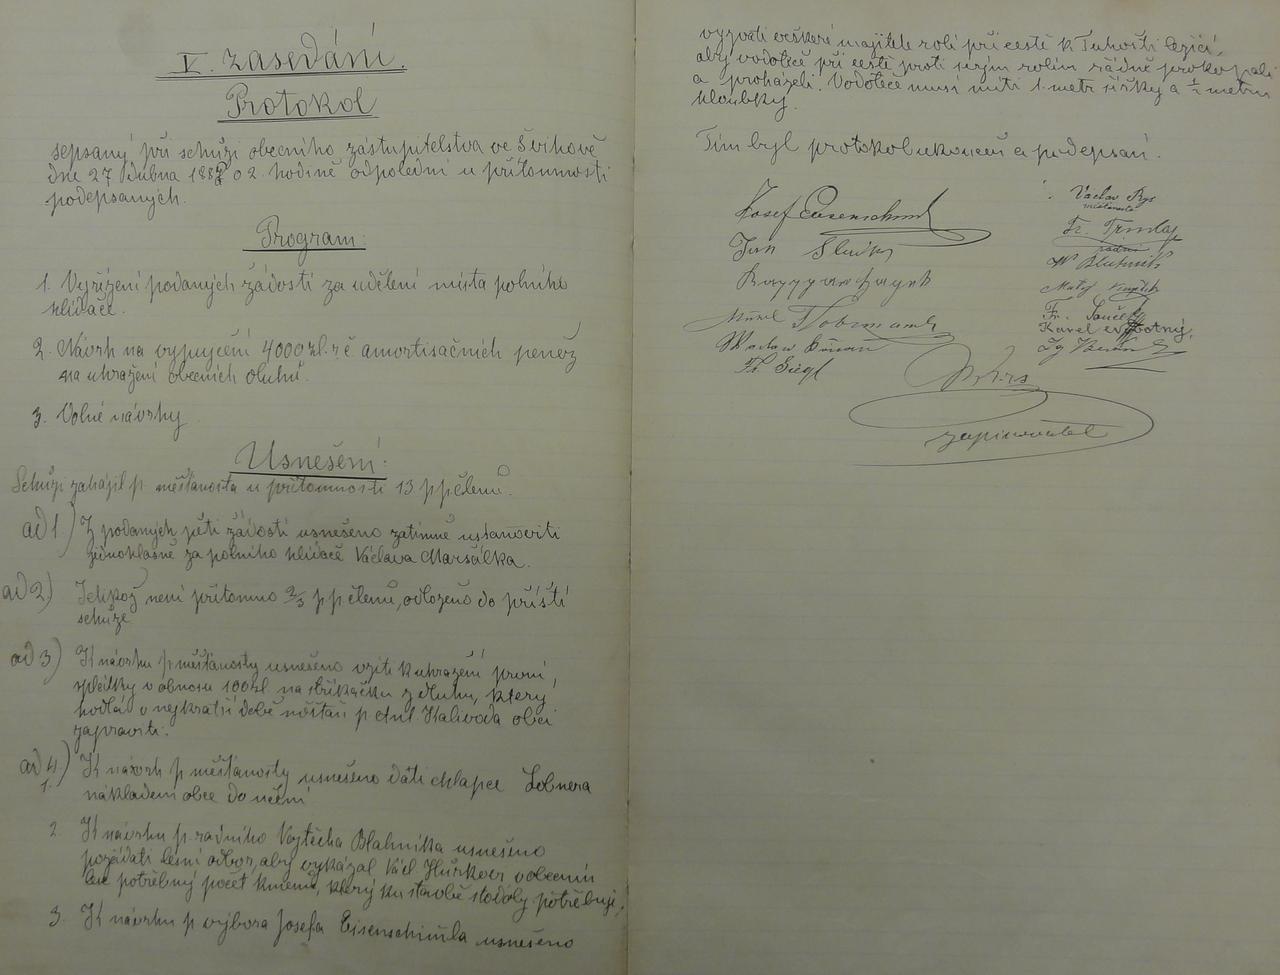 V. zasedání.
Protokol
sepsaný při schůzi obecního zástupitelstva ve Švihově
dne 27 dubna 188 o 2. hodině odpolední u přítomnosti
podepsaných.
Program:
1. Vyřízení podaných žádostí za udělení místa polního
hlídače.
2. Návrh na vypujčení 4000 zl. r č amortisačních peněz
na uhražení obecních dluhů.
3. Volné návrhy
Usnešení:
Schůzi zahájil p. měšťanosta u přítomnosti 13 p p členů.
ad 1.) Z podaných pěti žádostí usnešeno zatímně ustanoviti
jednohlasně za polního hlídače Václava Maršálka.
ad 2) Jelikož není přítomno 2/3 p p. členů, odloženo do příští
schůze
ad 3) K návrhu p měšťanosty usnešeno vzíti k uhražení první
splátky v obnosu 100 zl. na stříkačku z dluhu, který
hodlá v nejkratší době p Ant. Kalivoda obci
zapraviti.
ad 4.) K návrh p měšťanosty usnešeno dáti chlapce Lobnera
1. nákladem obce do učení
2. K návrhu p. radního Vojtěcha Blahníka usnešeno
požádati lesní odbor, aby vykázal Václ. Hůrkovi v obecním
lese potřebný počet kmenů, který ku stavbě stodoly potřebuje.
3. K návrhu p výbora Josefa Eisenschimla usnešeno
vyzvati veškeré majitele rolí při cestě k Tuhošti ležící,
aby vodoteče při cestě proti svým rolím řádně prokopali
a proházeli. Vodoteče musí míti 1. metr šířky a 1/2 metru
hloubky.
Tím byl protokol ukončen a podepsán.
Josef Eisenschiml
Václav Rys
měšťanosta
Jan
Fr. Trnda
radní
W Blahník
Matěj
Fr. Souček
Karel Novotný
Václav
Fr. Siegl
zapisovatel